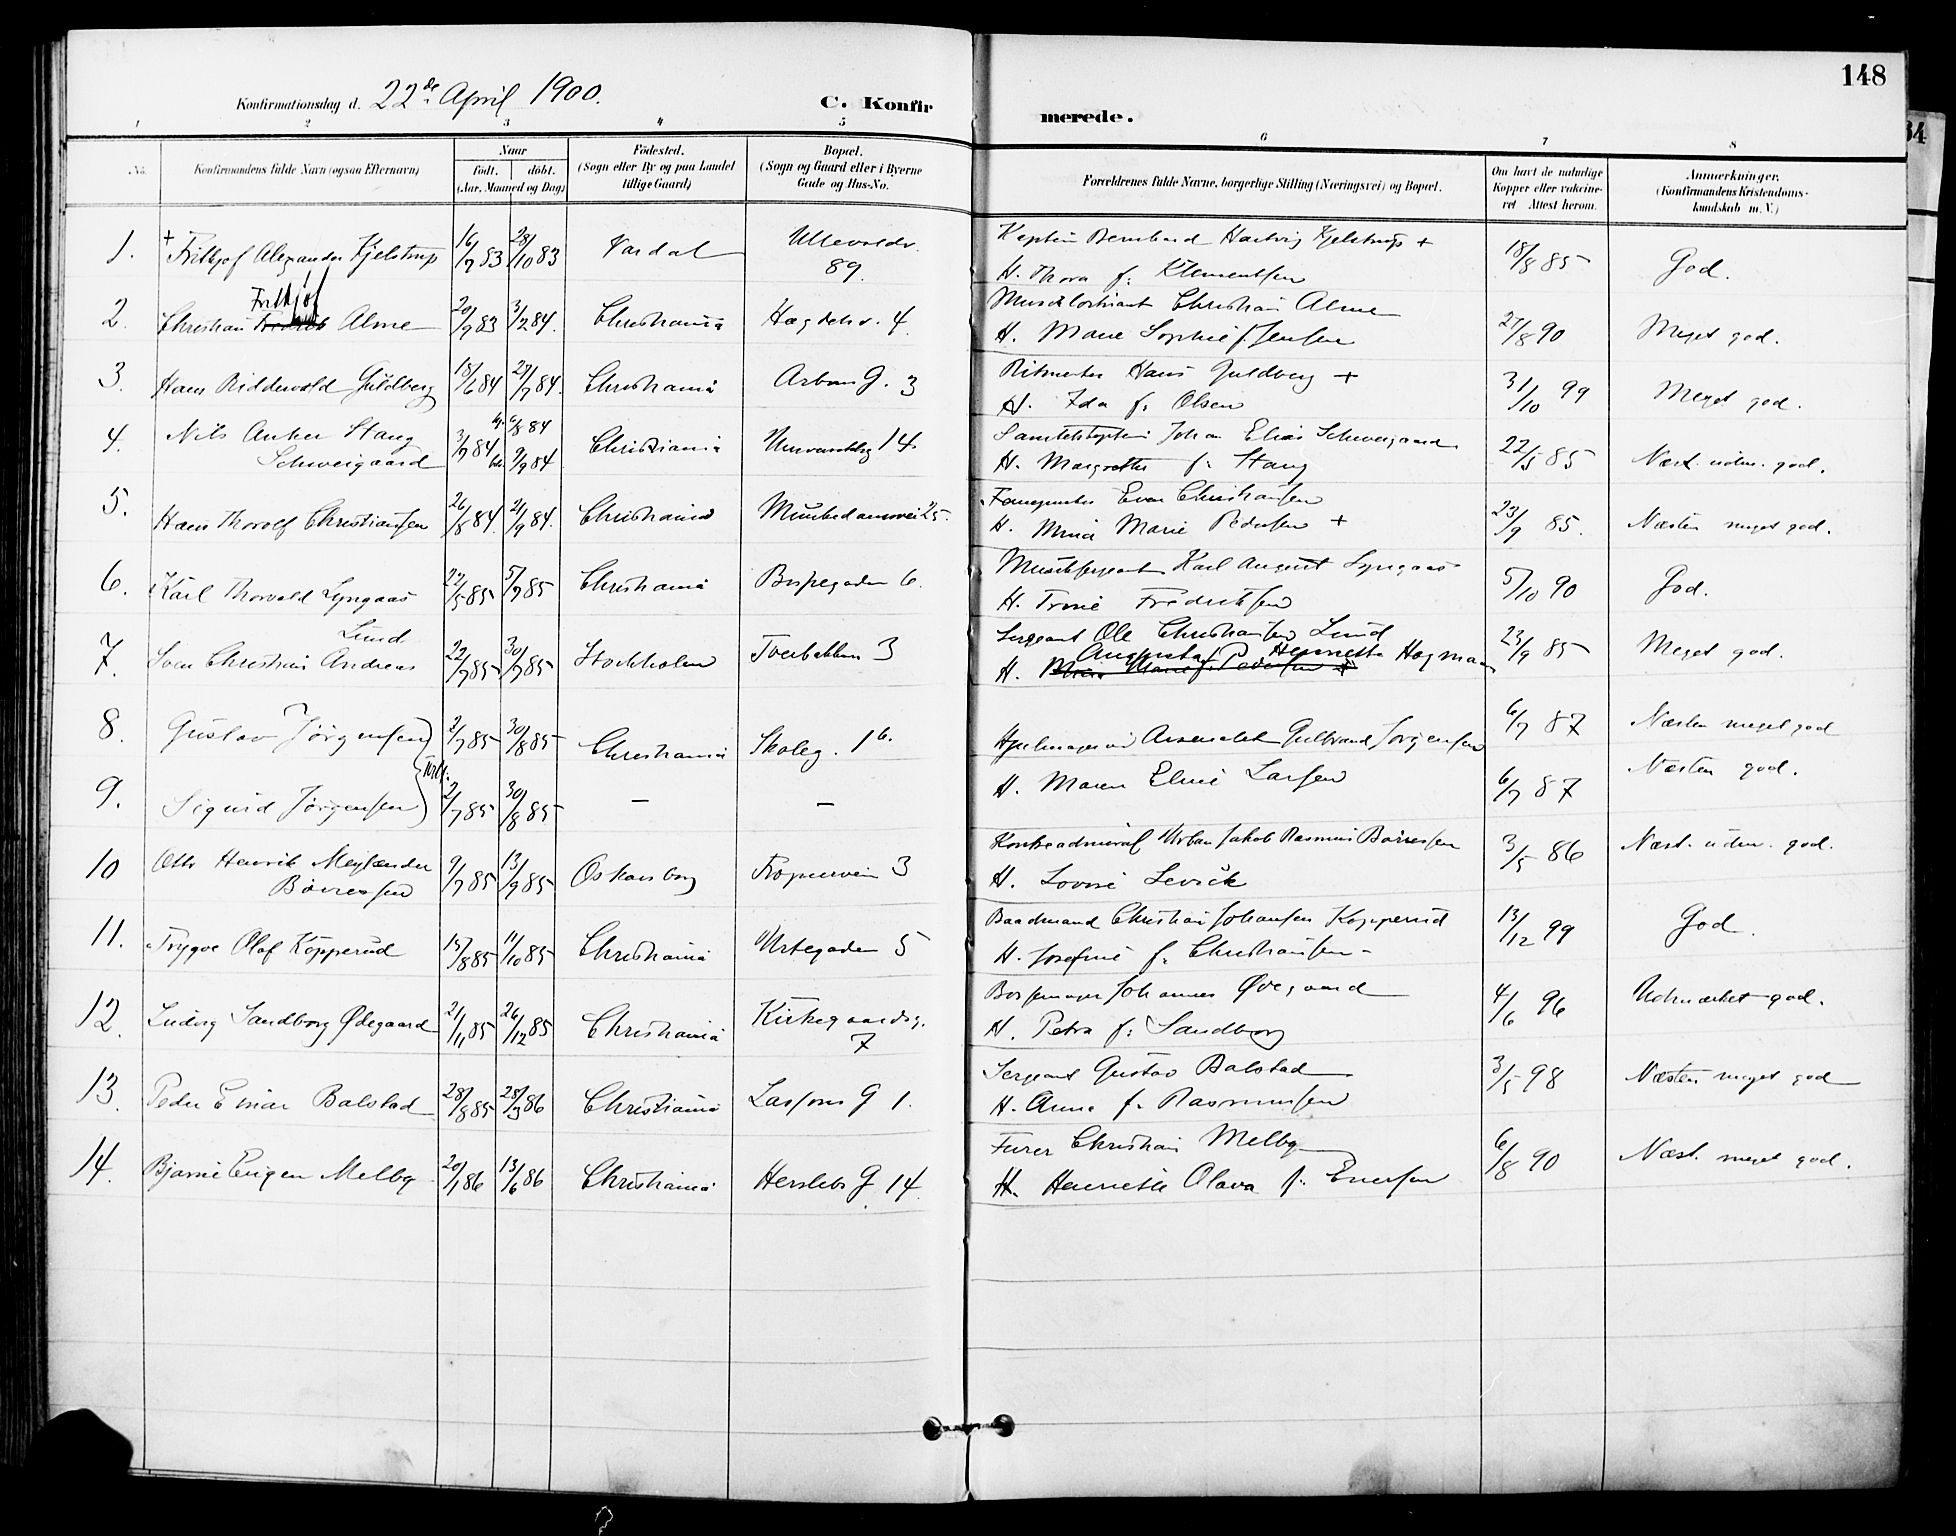 148
Konfirmationsdag d. 22de April 1900. C. Konfirmerede.
1 2 3 4 5 6 7 8
No. Konfirmandens fulde Navn (ogsaa Efternavn) Naar født. døbt. (Aar, Maaned og Dag) Fødested. (Sogn eller By og paa Landet tillige Gaard) Bopæl. (Sogn og Gaard eller i Byerne Gade og Hus-No. Forældrenes fulde Navne, borgerlige Stilling (Næringsvei) og Bopæl. Om havt de naturlige Kopper eller vakcineret Attest herom. Anmerkninger. (Konfirmandens Kristendomskundskab m. V.)
1. + Frithjof Alexander Kjelstrup 16/7 83 28/10 83 Vardal Ullevoldsv. 89. Kaptein Bernhard Hartvig Kjelstrup +
H. Thora f. Klementsen 18/8 85 God.
2. Christian Frithjof Alme 20/9 83 3/2 84. Christiania Hægdehv. 4. Christian Alme
H. Marie Sophie f. Jensen 27/8 90 Meget god.
3. Hans Ridderwold Guldberg 18/6 84 27/7 84. Christiania Arbos G. 3 Ritmester Hans Guldberg +
H. Ida f. Olsen 31/10 99 Meget god.
4. Nils Anker Stang Schweigaard 3/7 84 6/8 84 9/9 84. Christiania 14. Johan Elias Schweigaard
H. Margrethe f. Stang 22/5 85 Næst. udm. god.
5. Hans Thorolf Christiansen 26/8 84. 21/9 84. Christiania Munkedamsvei 25. Even Christiansen
H. Mina Marie Pedersen + 23/9 85. Næsten meget god.
6. Karl Thorvald Lyngaas 22/5 85 5/7 85 Christiania Bispegaden 6. Musiksergeant Karl August Lyngaas
H. Trine Fredriksen 5/10 90 God.
7. Sven Christian Andreas Lund 22/7 85 30/7 85 Stockholm Tverbakken 3 Sergeant Ole Christiansen Lund
H. Augusta Henrietta Hagman 23/9 85 Meget god.
8. Gustav Jørgensen 2/7 85 30/8 85 Christiania Skoleg. 1b. Hjulmager ved Arsenalet Gulbrand Jørgensen 6/7 87 Næsten meget god
Tvill.
9. Sigurd Jørgensen 2/7 85 30/8 85 — — H. Maren Eline Larsen 6/7 87 Næsten god.
10 Otto Henrik Meylænder Børresen 9/7 85 13/9 85 Oskarsborg Frognervein 3 Kontreadmiral Urban Jakob Rasmus Børresen
H. Lovise Levick 3/5 86 Næst. udm. god.
11. Trygve Olaf Kopperud 15/8 85 11/10 85 Christiania Urtegaden 5 Baadmand Christian Johansen Kopperud
H. Josefine f. Christiansen 13/12 99 God.
12. Ludvig Sandborg Ødegaard 21/11 85 26/12 85 Christiania Kirkegaardsg. 7 Børsemager Johannes Ødegaard
H. Petra f. Sandborg 4/6 96 Udmærket god.
13. Peder Einar Balstad 28/8 85 28/3 86 Christiania Lassons G 1. Sergeant Gustav Balstad
H. Anna f. Rasmussen 3/5 98 Næsten meget god
14. Bjarne Eugen Melby 20/1 86 13/6 86 Christiania Herslebs G. 14. Furer Christian Melby
H. Henriette Olava f. Enersen 6/8 90 Næst. meget god.